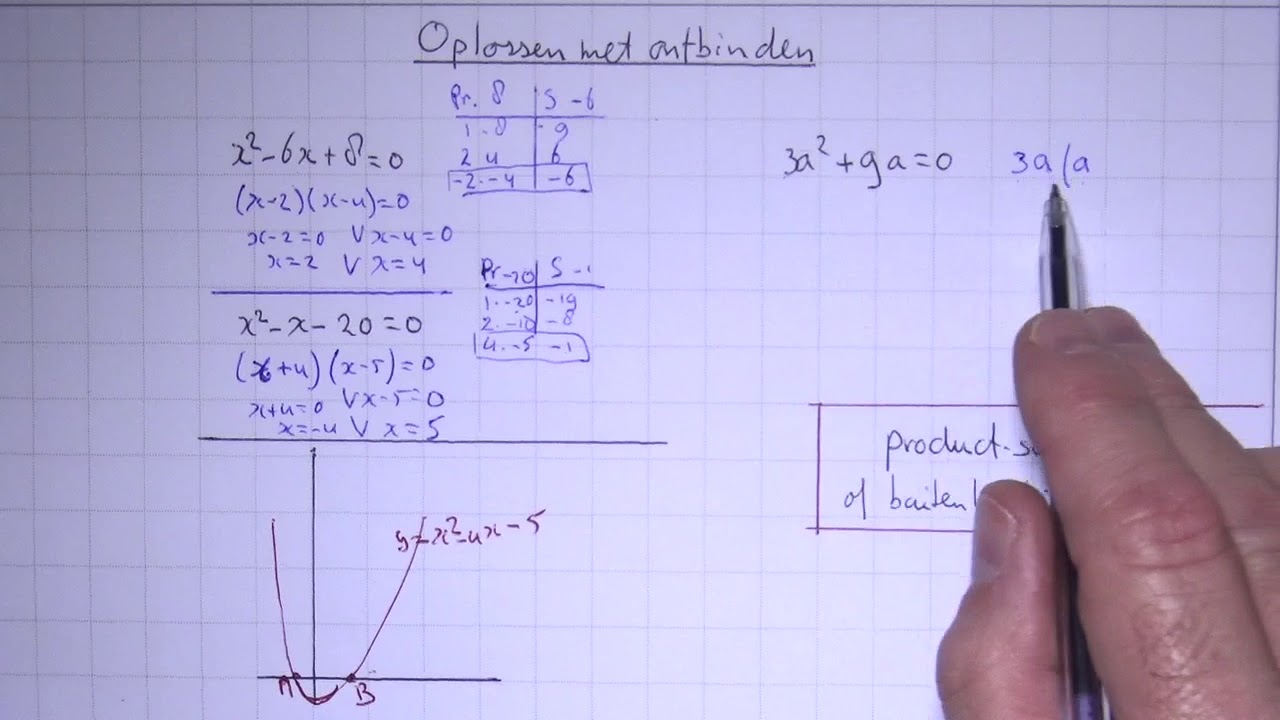 Oplossen met ontbinden
x² - 6x + 8 = 0
(x-2)(x-4)=0
x-2=0 V x-4=0
x=2 V x=4
Pr. 8 | S -6
1·8 | -9
2 4 | 6
-2·-4 | -6
x² - x - 20 = 0
(x+4)(x-5)=0
x+4=0 V x-5=0
x=-4 V x=5
Pr -20 | S -1
1·-20 | -19
2·-10 | -8
4·-5 | -1
y=x²-4x-5
A B
3a² + 9a = 0 3a(a
product-
of buiten